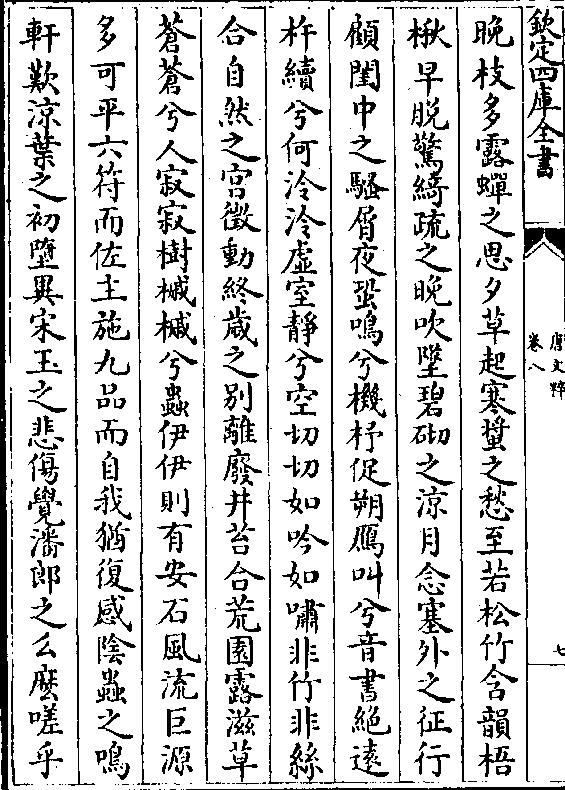 欽定四庫全書
唐文粹
卷八
七
晚枝多露蟬之思夕草起寒螿之愁至若松竹含韻梧
楸早脫驚綺疏之晚吹墜碧砌之涼月念塞外之征行
顧閨中之騷屑夜蛩鳴兮機杼促朔鴈叫兮音書絕遠
杵續兮何泠泠虛室靜兮空切切如吟如嘯非竹非絲
合自然之宮徵動終歲之別離廢井苔合荒園露滋草
蒼蒼兮人寂寂樹槭槭兮蟲伊伊則有安石風流巨源
多可平六符而佐主施九品而自我猶復感陰蟲之鳴
軒歎涼葉之初墮異宋玉之悲傷覺潘郎之么麽嗟乎